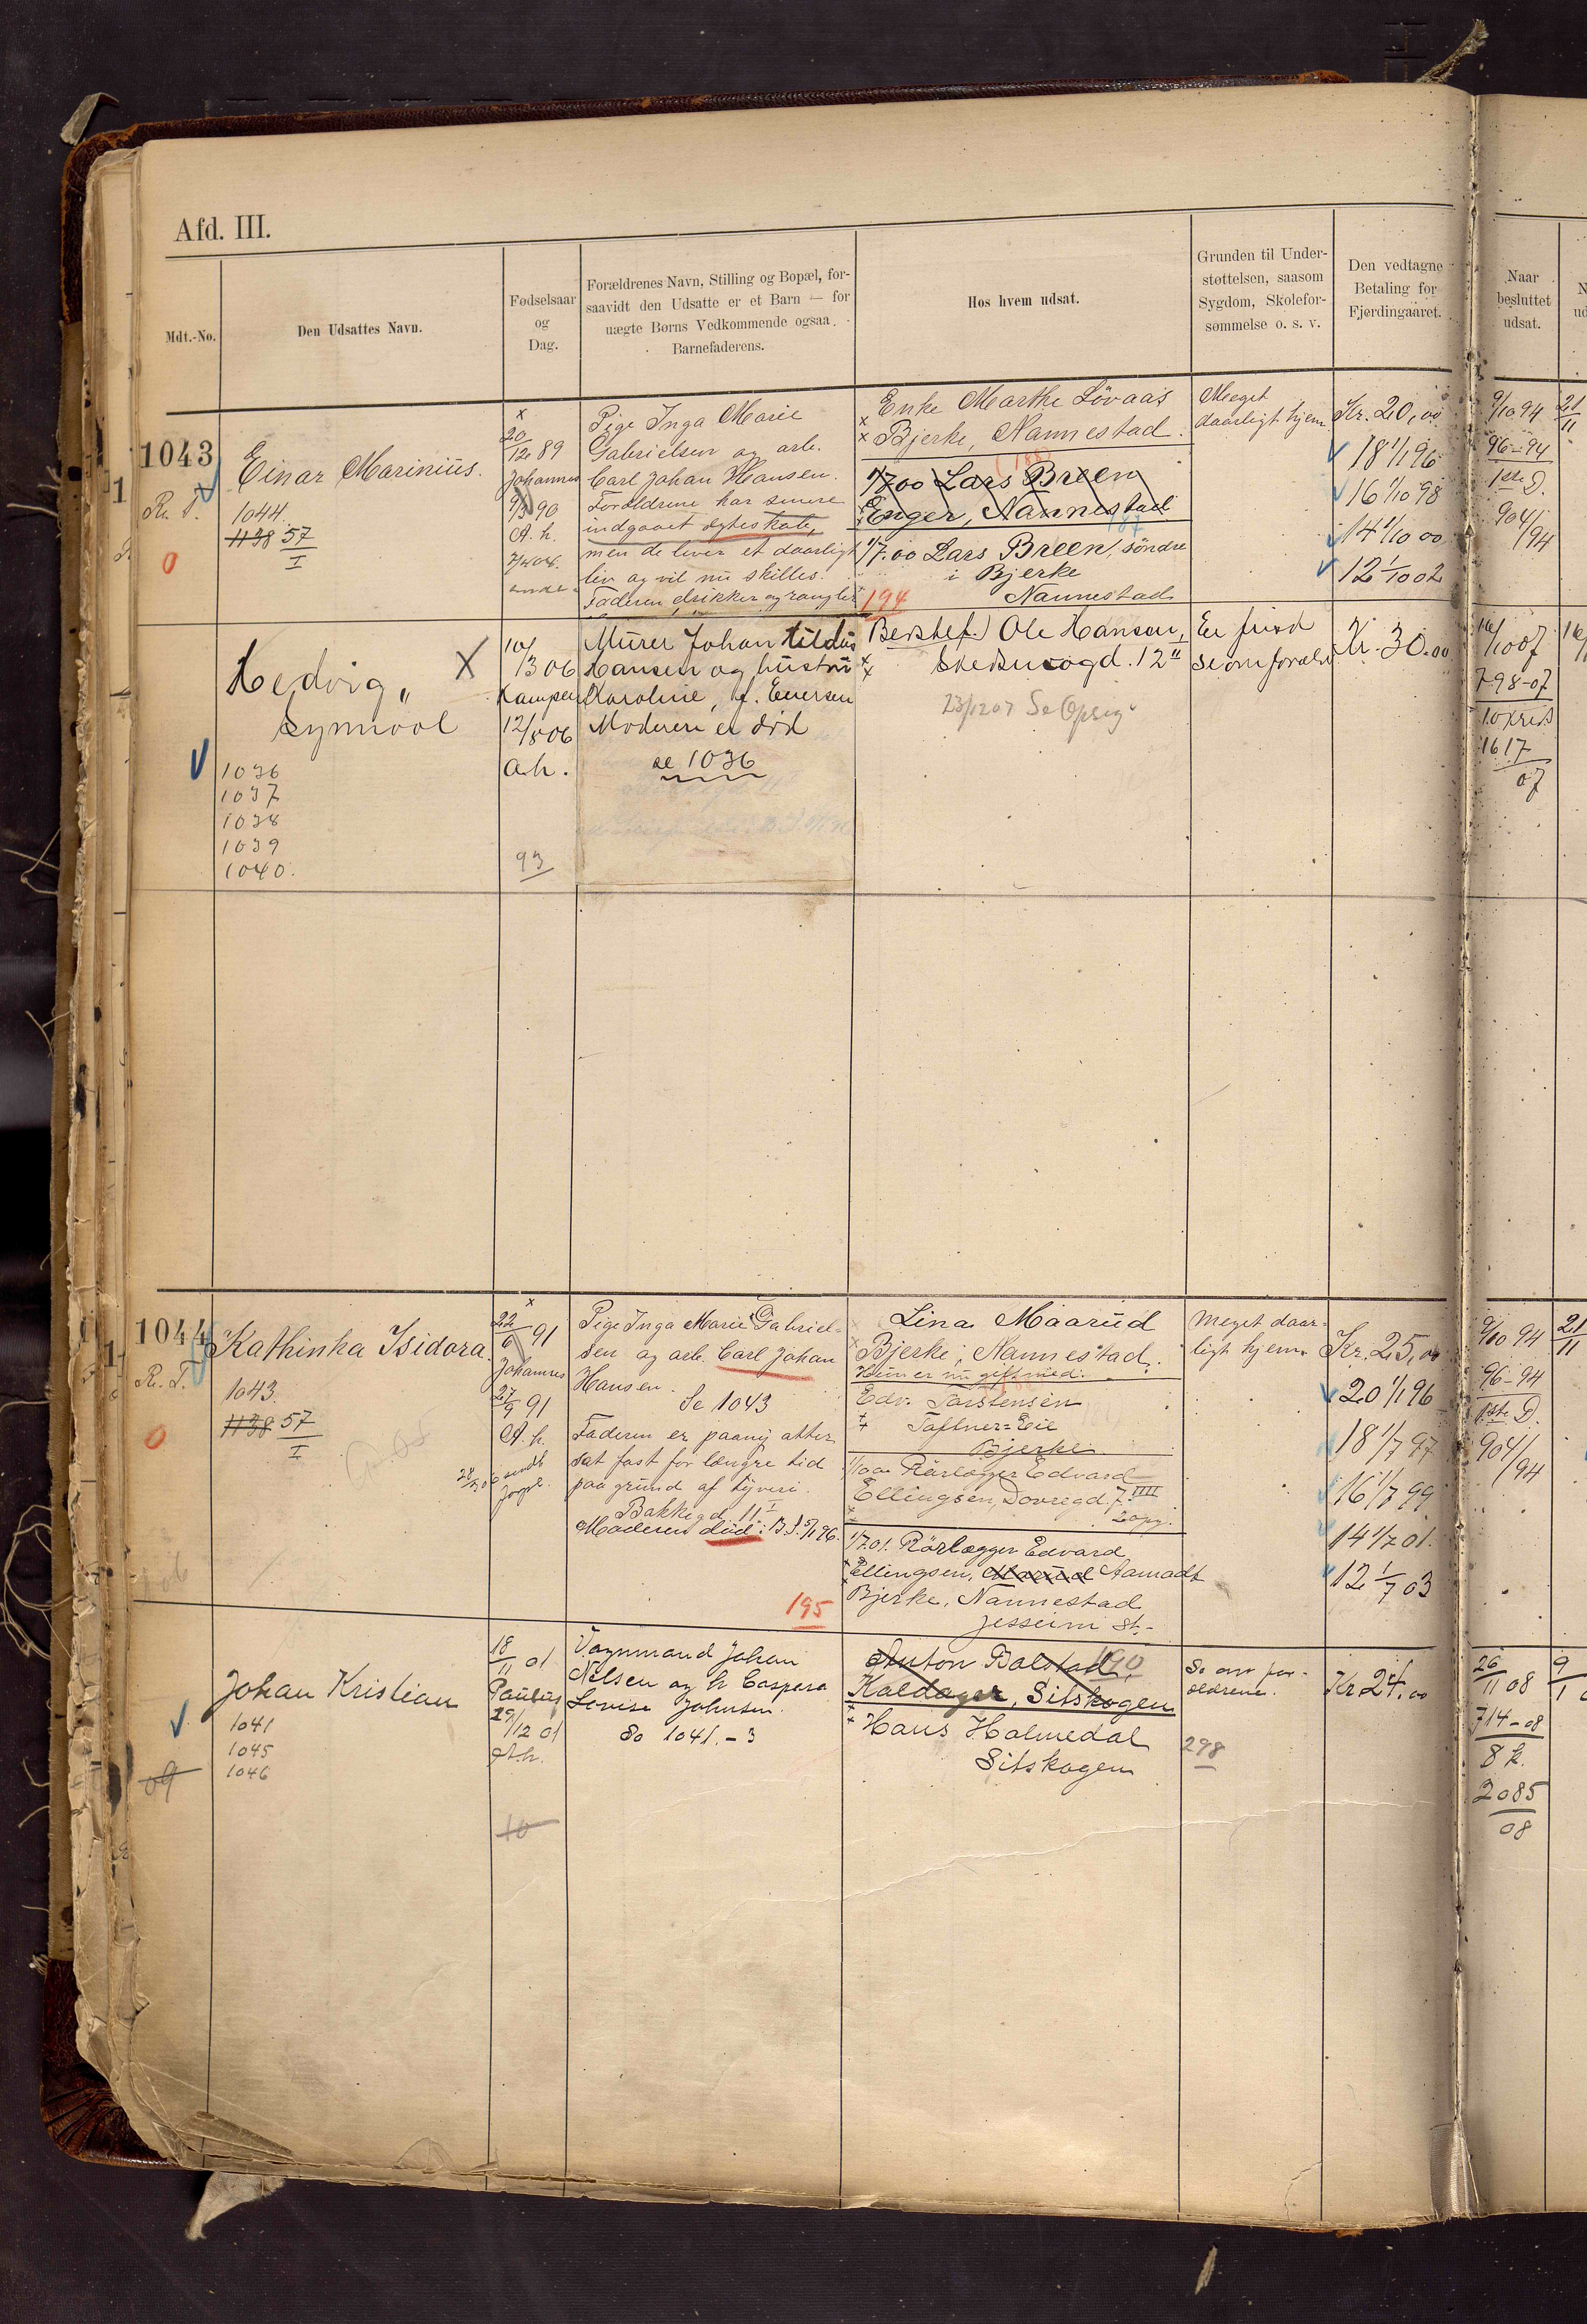 Afd. III.
Mdt.-No.
Den Udsattes Navn.
Fødselsaar
og
Dag.
Forældrenes Navn, Stilling og Bopæl, for-
saavidt den Udsatte er et Barn — for
uægte Børns Vedkommende ogsaa
Barnefaderens.
Hos hvem udsat.
Grunden til Under-
støttelsen, saasom
Sygdom, Skolefor-
sømmelse o. s. v.
Den vedtagne
Betaling for
Fjerdingaaret.
Naar
besluttet
udsat.
1043
R. T.
0
Einar Marinius.
1044.
1138 57
I
x
20/12 89
Johannes
9/3 90
A. h.
Pige Inga Marie
Gabrielsen og arb.
Carl Johan Hansen.
Forældrene har senere
indgaaet ægteskab,
men de lever et daarligt
liv og vil nu skilles.
Faderen drikker og rangler
Enke Marthe Løvaas
Bjerke, Nannestad.
1/7 00 Lars Breen
Enger, Nannestad
1/7.00 Lars Breen, søndre
i Bjerke
Nannestad
194
Meget
daarligt hjem
Kr. 20,00
18 1/1 96
16 1/10 98
14 1/10 00
12 1/10 02
9/10 94
96-94
1ste D.
904/94
21/11
Hedvig
Synnøve
X
1036
1037
1038
1039
1040.
10/
13 06
Kampen
12/8 06
A.h.
93
Murer Johan
Hansen og hustru
Karoline, f. Eversen
Moderen er død
se 1036
Ole Hansen,
12"
23/12 07 Se
Kr. 30.00
16/10 07
798-07
1617
07
1044
R. T.
0
Kathinka Isidora
1043.
1138 57
I
x
22/6 91
Johannes
27/9 91
A. h.
Pige Inga Marie Gabriel-
sen og arb. Carl Johan
Hansen.
Se 1043
Faderen er paany atter
sat fast for længre tid
paa grund af tyveri.
Bakkegd. 11 I
Moderen død: B.J. 5/1 96.
195
Lina Maarud
Bjerke, Nannestad.
Hun er nu gift med:
Edv. Torstensen
Taftner-Eie
Bjerke
Rørlægger Edvard
Ellingsen, Dovregd. 7 IIII
1/7.01. Rørlægger Edvard
Ellingsen, Maarud Aamodt
Bjerke, Nannestad
Jesseim St.-
Meget daar-
ligt hjem.
Kr. 25,00
20 1/1 96
18 1/7 97
16 1/7 99
14 1/7 01.
12 1/7 03
9/10 94
96-94
1ste D.
904/94
21/11
Johan Kristian
1041
1045
1046
09
18/11 01
Paulus
29/12 01
A.h.
10
Vognmand Johan
Nilsen og h. Caspara
Lovise Johnsen.
Se 1041.-3
Anton Bolstad,
Kaldager, Sitskogen
Hans Holmedal
Sitskogen
298
Se om for-
ældrene.
Kr. 24.00
26/11 08
714-08
8 k.
2085
08